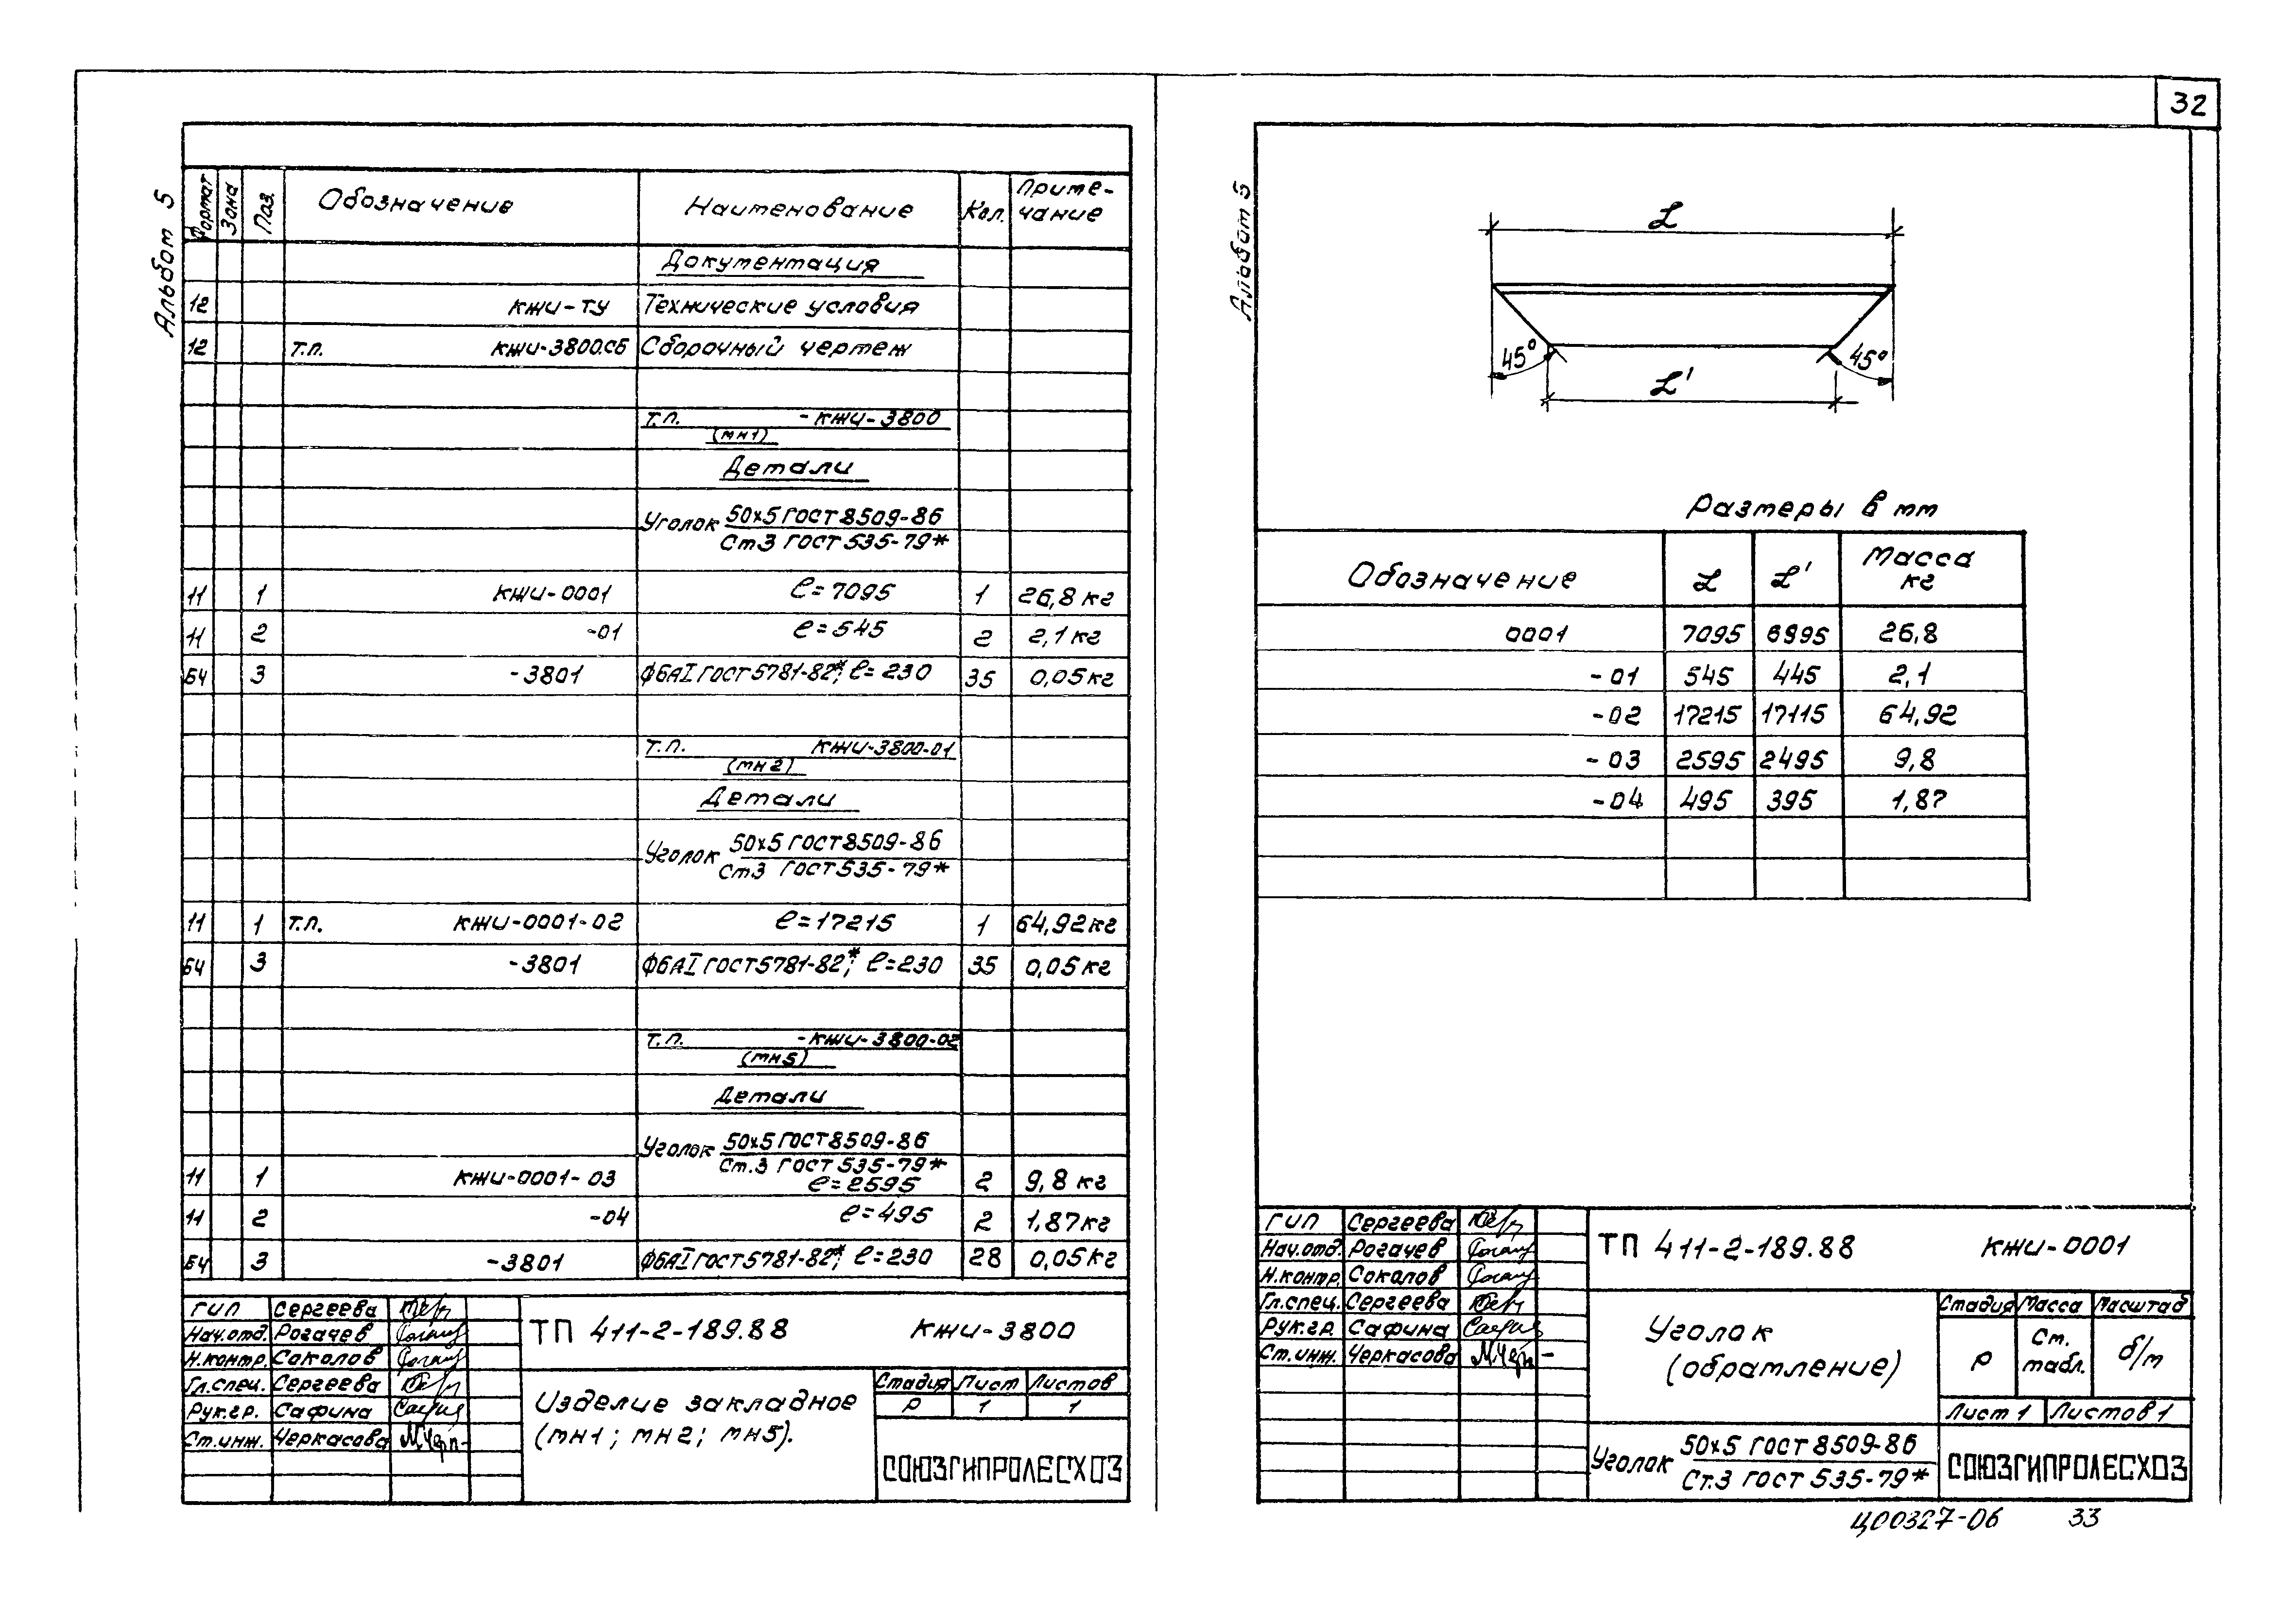 32
Альбом 5
Формат Зона Поз. Обозначение Наименование Кол. Приме-
чание
Документация
12 КЖИ-ТУ Технические условия
12 т.п. КЖИ-3800СБ Сборочный чертеж
т.п. -КЖИ-3800
(МН1)
Детали
Уголок 50х5 ГОСТ 8509-86
Ст3 ГОСТ 535-79*
11 1 КЖИ-0001 ℓ=7095 1 26,8 кг
11 2 -01 ℓ=545 2 2,1 кг
БЧ 3 -3801 Ф6АI ГОСТ 5781-82*; ℓ=230 35 0,05 кг
т.п. КЖИ-3800-01
(МН2)
Детали
Уголок 50х5 ГОСТ 8509-86
Ст3 ГОСТ 535-79*
11 1 т.п. КЖИ-0001-02 ℓ=17215 1 64,92 кг
БЧ 3 -3801 Ф6АI ГОСТ 5781-82*; ℓ=230 35 0,05 кг
т.п. -КЖИ-3800-02
(МН5)
Детали
Уголок 50х5 ГОСТ 8509-86
Ст.3 ГОСТ 535-79*
11 1 КЖИ-0001-03 ℓ=2595 2 9,8 кг
11 2 -04 ℓ=495 2 1,87 кг
БЧ 3 -3801 Ф6АI ГОСТ 5781-82*; ℓ=230 28 0,05 кг
ГИП Сергеева
Нач.отд. Рогачев
Н.контр. Соколов
Гл.спец. Сергеева
Рук.гр. Сафина
Ст.инж. Черкасова
ТП 411-2-189.88 КЖИ-3800
Изделие закладное
(МН1; МН2; МН5).
Стадия Лист Листов
Р 1 1
СОЮЗГИПРОЛЕСХОЗ
Альбом 5
L
45° 45°
L'
Размеры в мм
Обозначение L L' Масса
кг
0001 7095 6995 26,8
-01 545 445 2,1
-02 17215 17115 64,92
-03 2595 2495 9,8
-04 495 395 1,87
ГИП Сергеева
Нач.отд. Рогачев
Н.контр. Соколов
Гл.спец. Сергеева
Рук.гр. Сафина
Ст.инж. Черкасова
ТП 411-2-189.88 КЖИ-0001
Уголок
(обрамление)
Стадия Масса Масштаб
Р Ст.
табл. б/м
Лист 1 Листов 1
Уголок 50х5 ГОСТ 8509-86
Ст.3 ГОСТ 535-79*
СОЮЗГИПРОЛЕСХОЗ
Ц00327-06 33